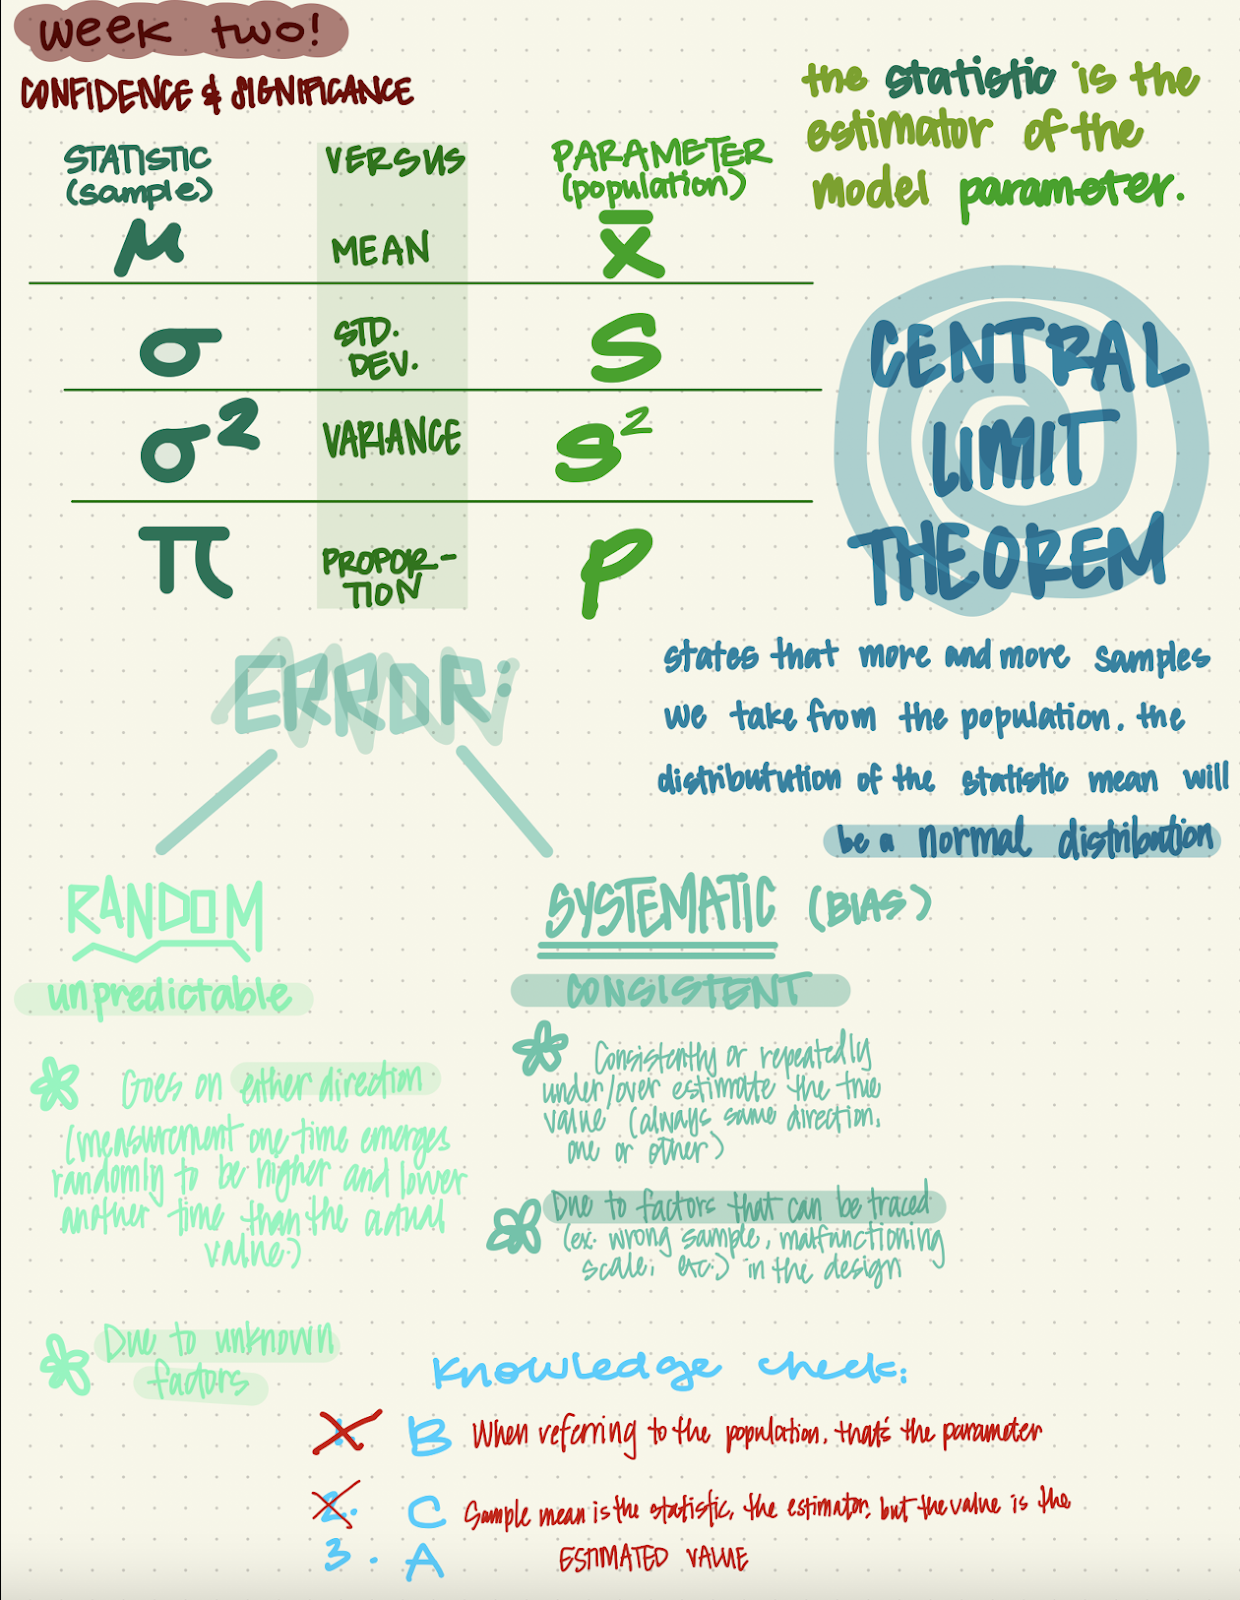 week two!
CONFIDENCE & SIGNIFICANCE
STATISTIC VERSUS PARAMETER
(sample) (population)
μ MEAN x̄
σ STD. DEV. S
σ² VARIANCE s²
π PROPOR-TION p
the statistic is the
estimator of the
model parameter.
CENTRAL
LIMIT
THEOREM
states that more and more samples
we take from the population. the
distributution of the statistic mean will
be a normal distribution
ERROR:
RANDOM
unpredictable
Goes on either direction
(measurement one time emerges
randomly to be higher and lower
another time than the actual
value.)
Due to unknown
factors
SYSTEMATIC (BIAS)
CONSISTENT
Consistently or repeatedly
under/over estimate the true
value (always same direction,
one or other)
Due to factors that can be traced
(ex. wrong sample, malfunctioning
scale, etc.) in the design
Knowledge check:
1. B When referring to the population, that's the parameter
2. C Sample mean is the statistic, the estimator, but the value is the
3. A ESTIMATED VALUE